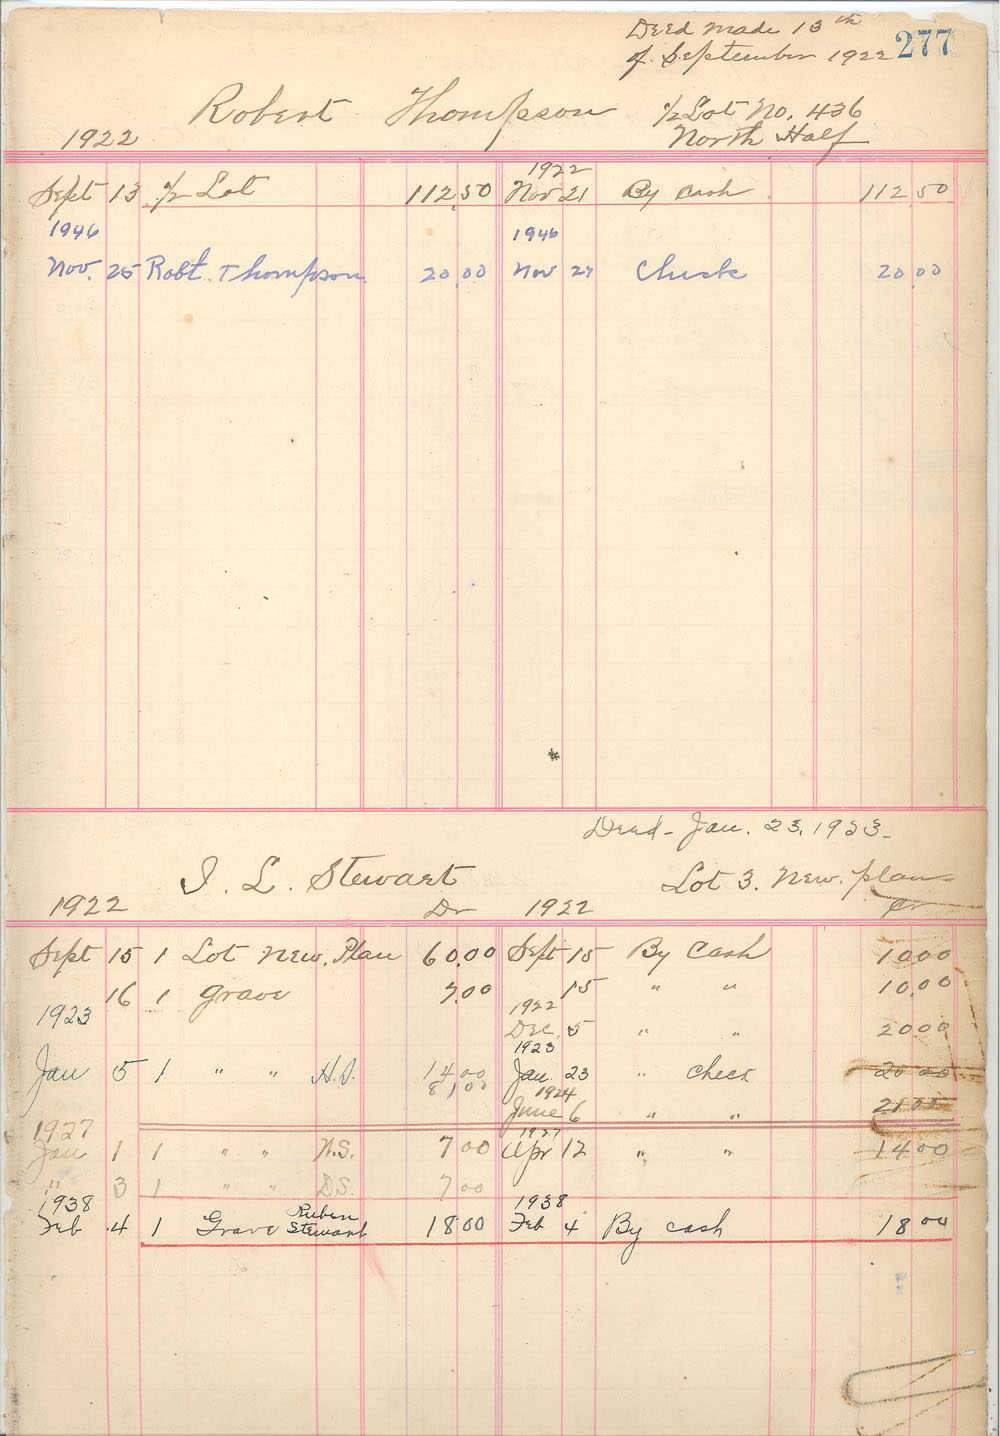 Deed made 13th
of September 1922 277
Robert Thompson 1/2 Lot No. 436
1922 North Half
1922
Sept 13 1/2 Lot 112.50 Nov 21 By Cash 112.50
1946 1946
Nov. 25 Robt. Thompson 20.00 Nov 27 Check 20.00
Deed - Jan. 23, 1923 -
J. L. Stewart Lot 3. New. plan
1922 Dr 1922 Cr
Sept 15 1 Lot New. Plan 60.00 Sept 15 By Cash 10.00
16 1 grave 7.00 15 " " 10.00
1923 1922
Dec. 5 " " 20.00
1923
Jan 5 1 " " 14.00 Jan 23 " check 20.00
81.00 1924
June 6 " " 21.00
1927 1927
Jan 1 1 " " N.S. 7.00 Apr 12 " " 14.00
" 3 1 " " D.S. 7.00
1938 1938
Feb 4 1 Grave Ruben Stewart 18.00 Feb 4 By cash 18.00